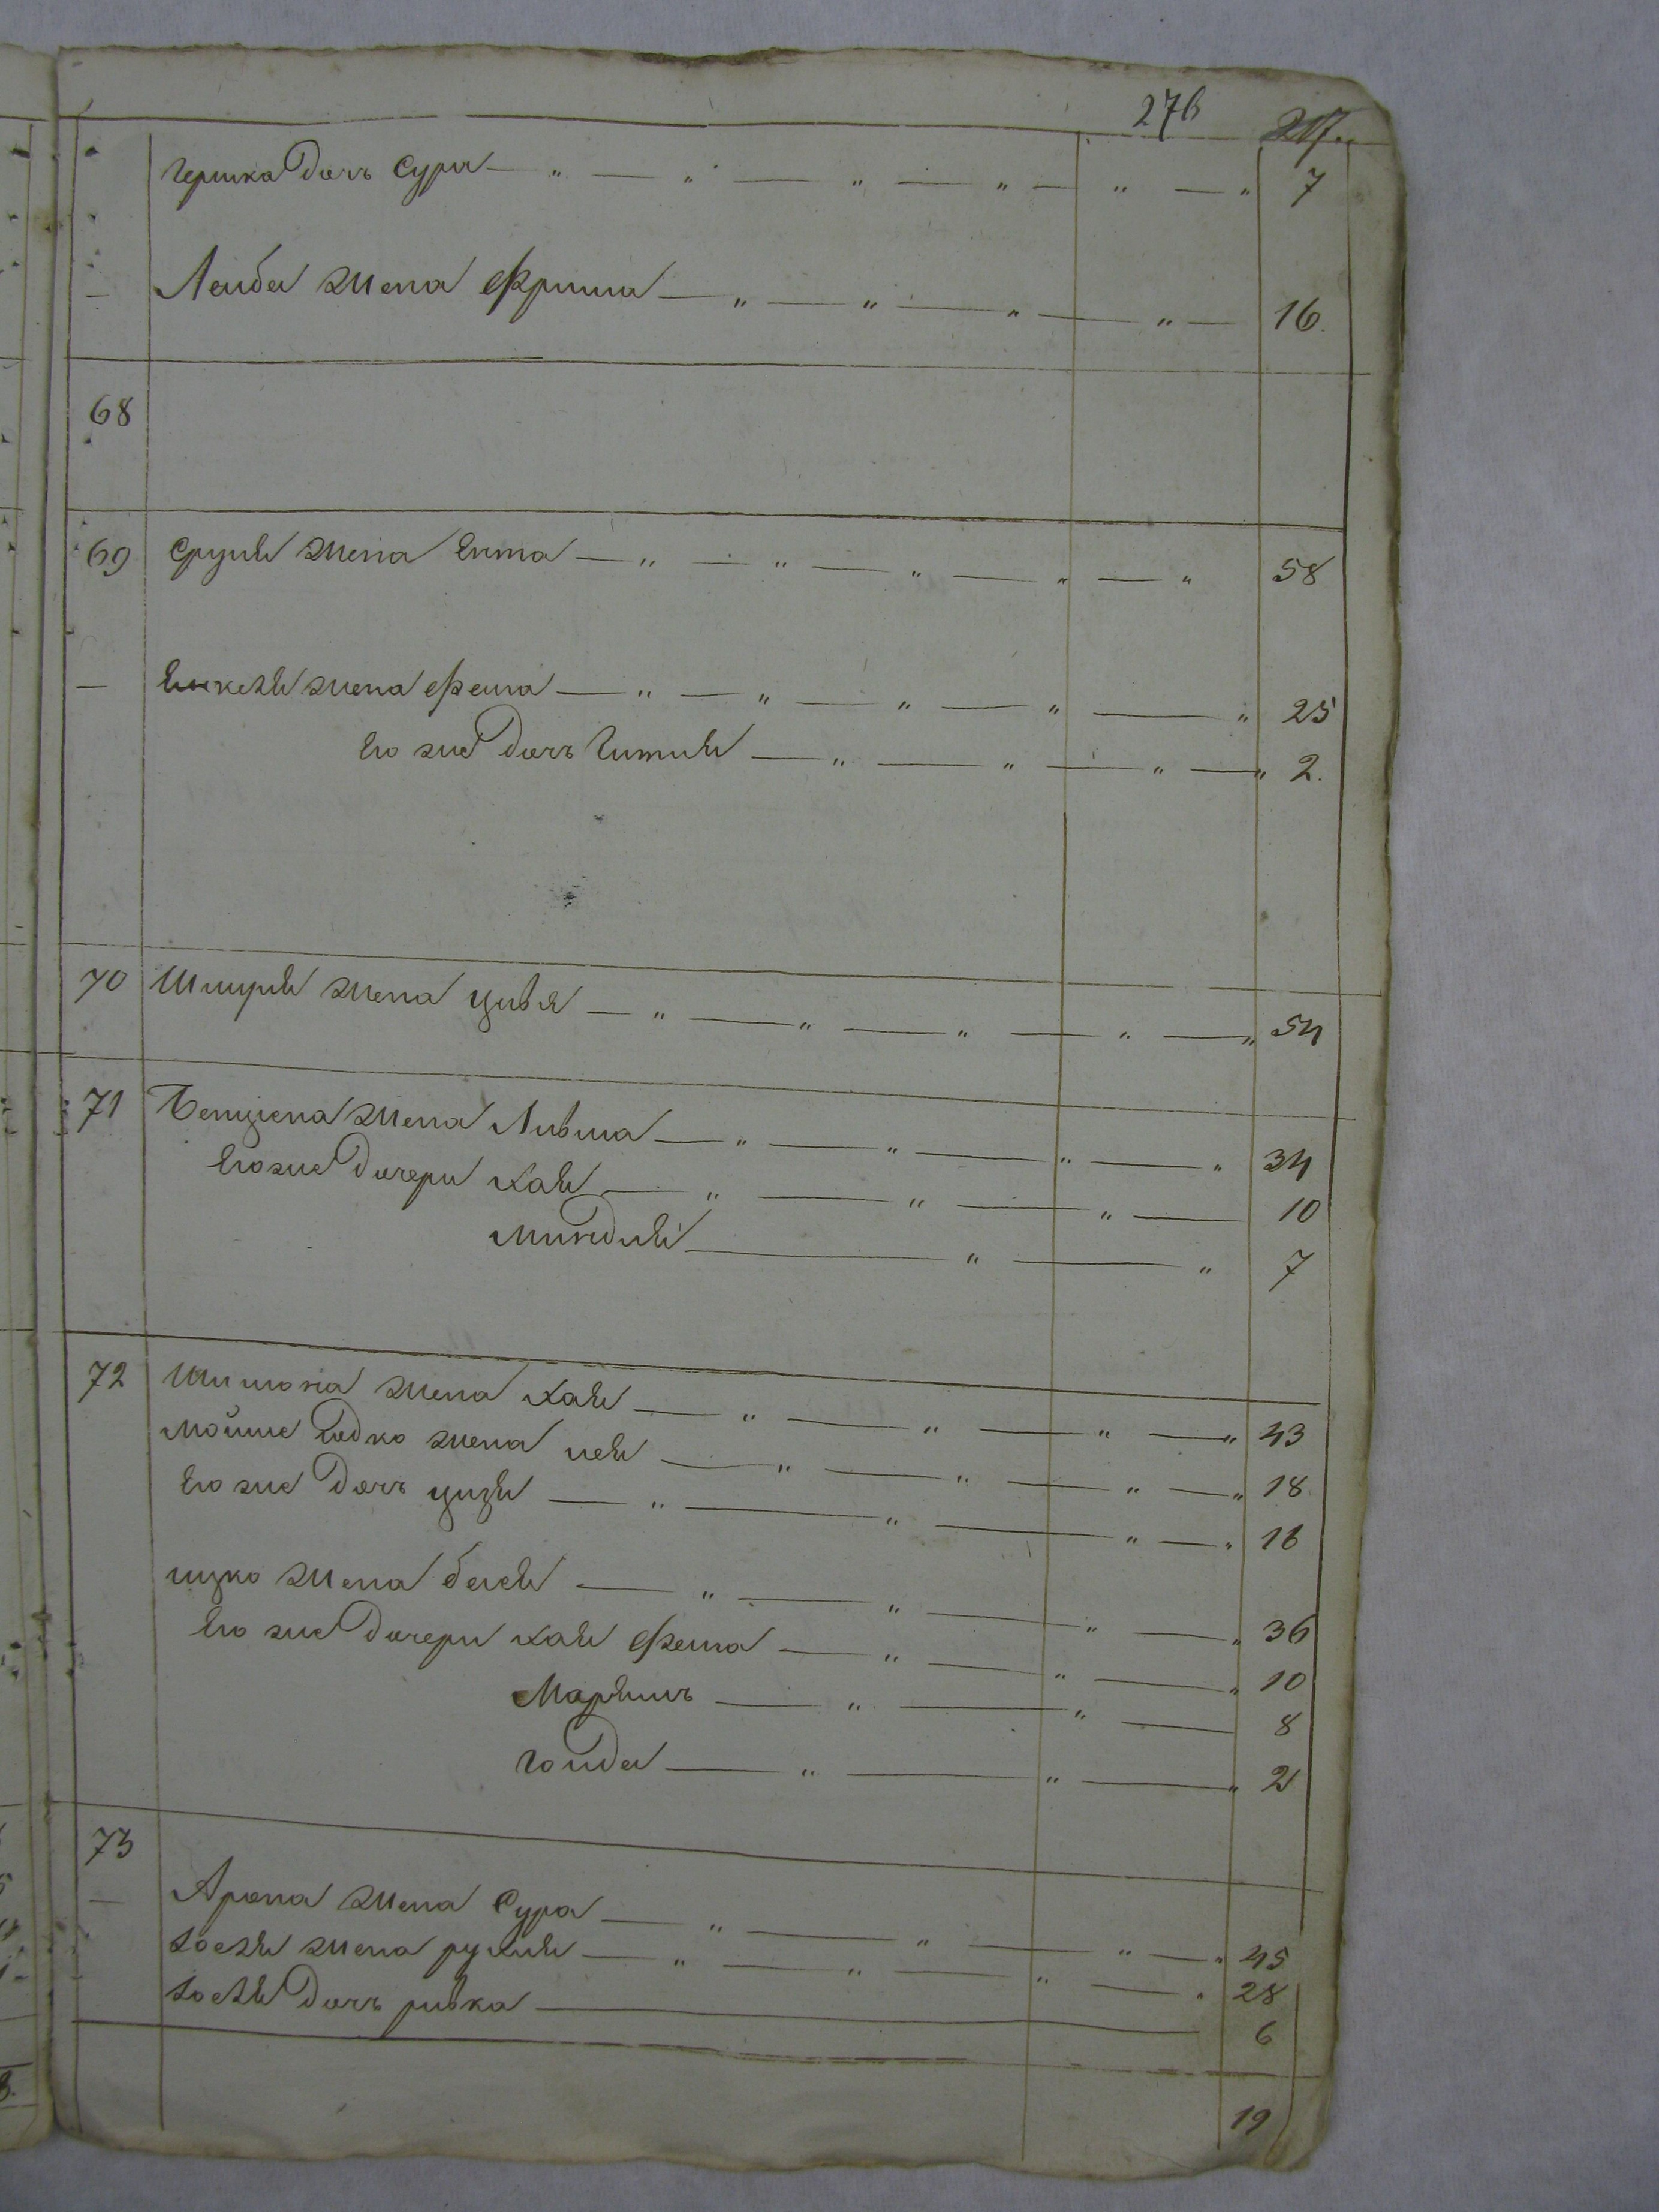 276 217
Гершка дочь Сура — " — " — " — " — " — " 7
— Лейбы жена Фрыма — " — " — " — " — 16.
68
69 Сруля жена Ента — " — " — " — " — " 58
— жена Фейга — " — " — " — " — " 25
Его же дочь Гитля — " — " — " — " 2.
70 Шмуля жена Цивья — " — " — " — " — " 54
71 Бенциона жена Ливша — " — " — " — " 34
Его же дочери Хая — " — " — " — 10
Миндля — " — " 7
72 Шимона жена Хая — " — " — " — " 43
Мойше жена — " — " — " — " 18
Его же дочь — " — " — " — " 16
Ицко жена Бейля — " — " — " — " 36
Его же дочери Хая Фейга — " — " — " 10
Марьямъ — " — " — 8
Голда — " — " — " 2
73
— Арона жена Сура — " — " — " — " 45
Иосля жена Рухля — " — " — " — " 28
Иосля дочь Ривка — 6
19